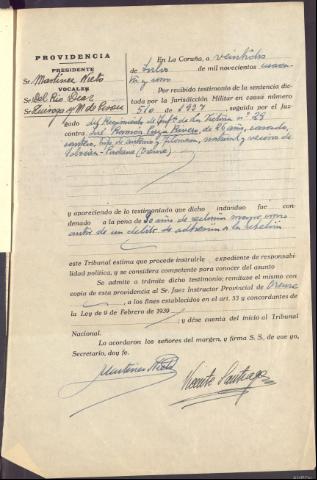 PROVIDENCIA
PRESIDENTE
Sr. Martínez Nieto
VOCALES
Sr. Del Río Díaz
Sr. Quiroga y M. de Pisón
En La Coruña, a veintiocho
de Julio de mil novecientos cuaren-
ta y uno
Por recibido testimonio de la sentencia dic-
tada por la Jurisdicción Militar en causa número
510 de 1937, seguido por el Juz-
gado del Regimiento de Infª de la Victoria nº 28
contra José Ramón de 26 años, casado,
hijo de Antonio y Filomena, natural y vecino de
(Orense)
y apareciendo de lo testimoniado que dicho individuo fue con-
denado a la pena de 30 años de reclusión mayor como
autor de un delito de adhesión a la rebelión
este Tribunal estima que procede instruirle expediente de responsabi-
lidad política, y se considera competente para conocer del asunto
Se admite a trámite dicho testimonio; remítase el mismo con
copia de esta providencia al Sr. Juez Instructor Provincial de Orense
, a los fines establecidos en el art. 53 y concordantes de
la Ley de 9 de Febrero de 1939 y dése cuenta del inicio al Tribunal
Nacional.
Lo acordaron los señores del margen, y firma S. S. de que yo,
Secretario, doy fe.
Martínez Nieto
Vicente Santiago